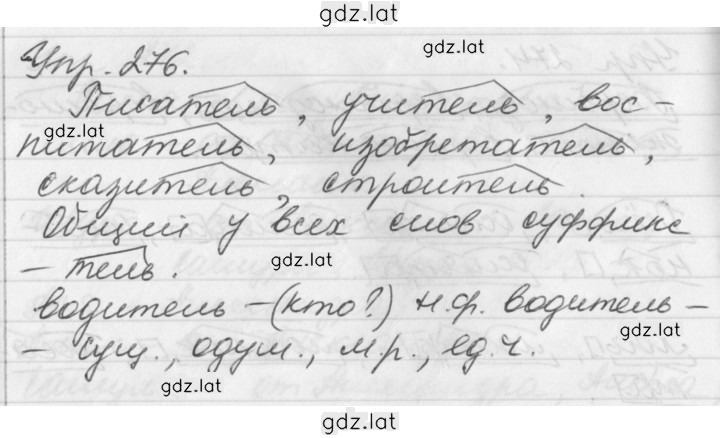 gdz.lat
Упр. 276.
gdz.lat
Писатель, учитель, вос-
gdz.lat
питатель, изобретатель,
сказитель, строитель.
Общий у всех слов суффикс
gdz.lat
- тель.
водитель - (кто?) н.ф. водитель -
gdz.lat
- сущ., одуш., м.р., ед.ч.
gdz.lat
gdz.lat